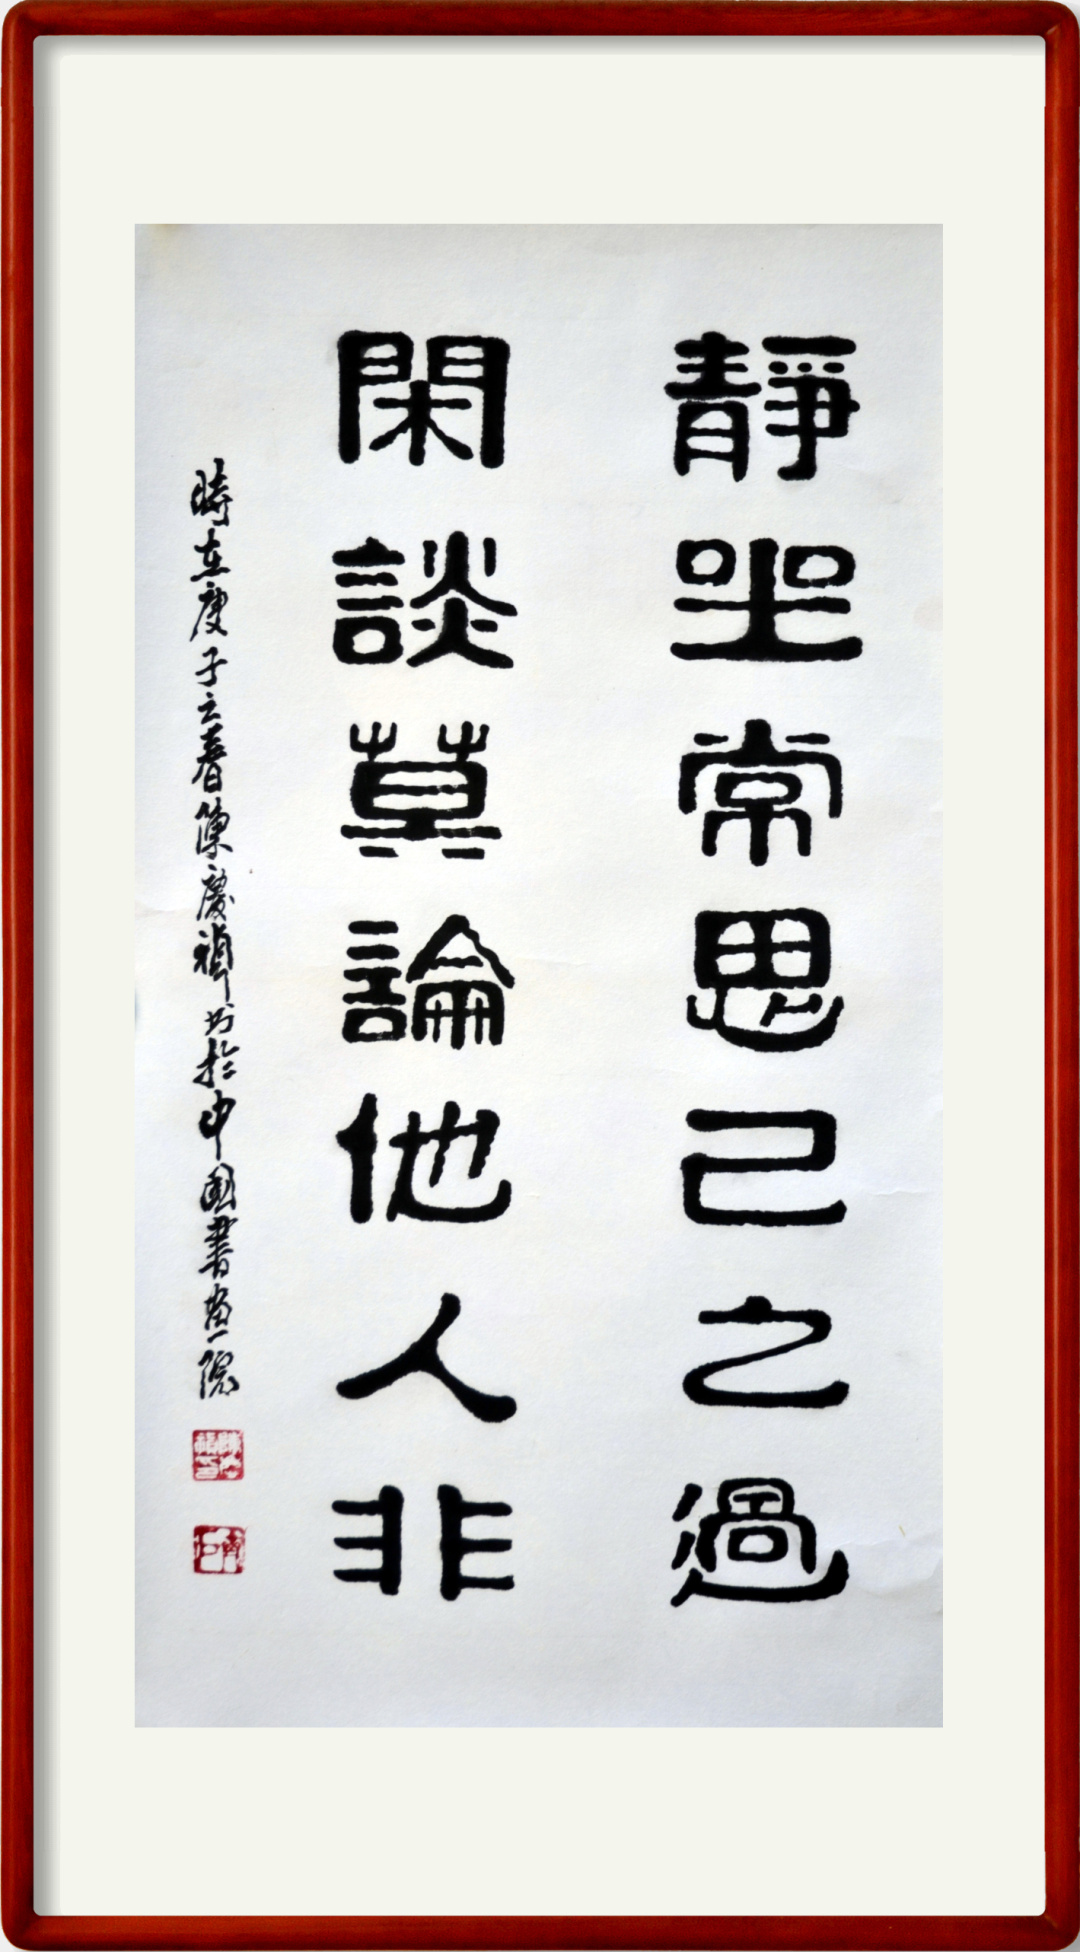 靜坐常思己之過
閑談莫論他人非
時在庚子之春陳慶禎书於中國書畫院